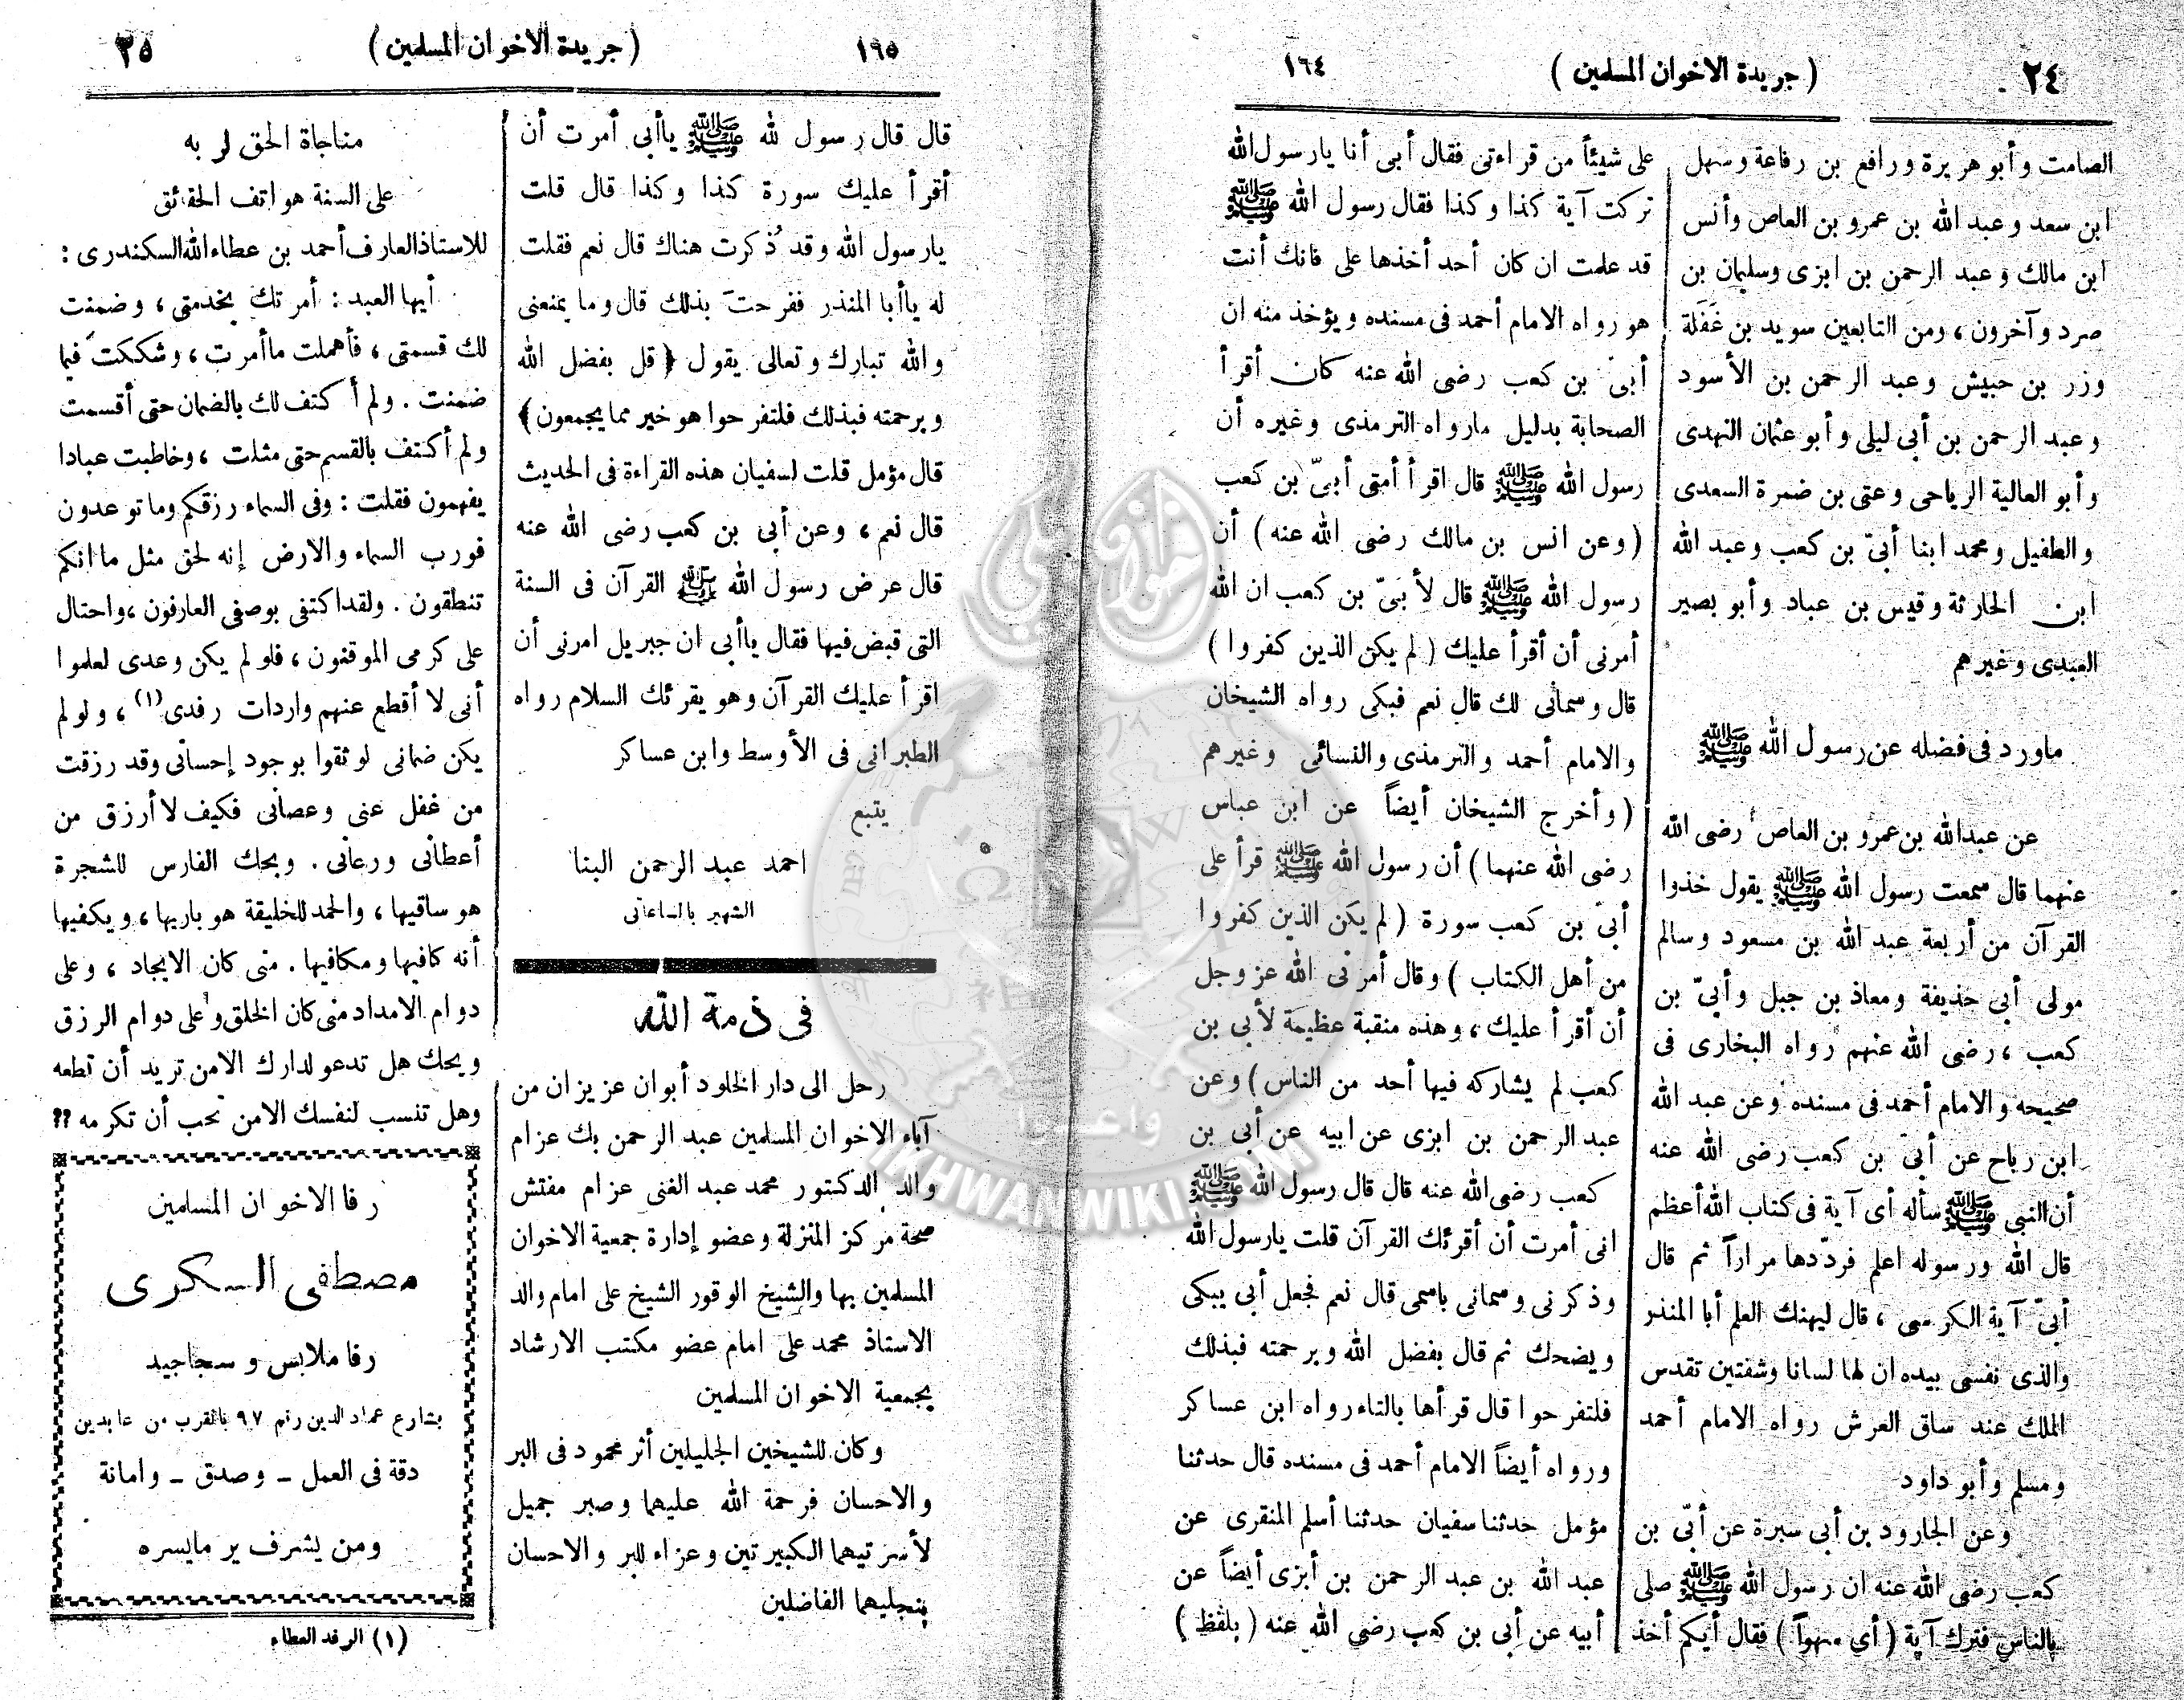 ٢٤
( جريدة الاخوان المسلمين )
١٦٤
الصامت وأبو هريرة ورافع بن رفاعة وسهل
ابن سعد وعبد الله بن عمرو بن العاص وأنس
ابن مالك وعبد الرحمن بن ابزى وسليمان بن
صرد وآخرون ، ومن التابعين سويد بن غَفَلة
وزر بن حبيش وعبد الرحمن بن الأسود
وعبد الرحمن بن أبى ليلى وأبو عثمان النهدى
وأبو العالية الرياحى وعتى بن ضمرة السعدى
والطفيل ومحمد ابنا أبىّ بن كعب وعبد الله
ابن الحارثة وقيس بن عباد وأبو بصير
العبدى وغيرهم
ماورد فى فضله عن رسول الله ﷺ
عن عبدالله بن عمرو بن العاص رضى الله
عنهما قال سمعت رسول الله ﷺ يقول خذوا
القرآن من أربعة عبد الله بن مسعود وسالم
مولى أبى حذيفة ومعاذ بن جبل وأبىّ بن
كعب ، رضى الله عنهم رواه البخارى فى
صحيحه والامام أحمد فى مسنده وعن عبد الله
ابن رباح عن أبىّ بن كعب رضى الله عنه
أن النبى ﷺ سأله أى آية فى كتاب الله أعظم
قال الله ورسوله اعلم فردّدها مراراً ثم قال
أبىّ آية الكرسى ، قال ليهنك العلم أبا المنذر
والذى نفسى بيده ان لها لسانا وشفتين تقدس
الملك عند ساق العرش رواه الامام أحمد
ومسلم وأبو داود
وعن الجارود بن أبى سبرة عن أبّى بن
كعب رضى الله عنه ان رسول الله ﷺ صلى
بالناس فترك آية ( أي سهواً ) فقال أيكم أخذ
على شيئاً من قراءتى فقال أبى أنا يارسول الله
تركت آية كذا وكذا فقال رسول الله ﷺ
قد علمت ان كان أحد أخذها على فانك أنت
هو رواه الامام أحمد فى مسنده ويؤخذ منه ان
أبىّ بن كعب رضى الله عنه كان أقرأ
الصحابة بدليل مارواه الترمذى وغيره أن
رسول الله ﷺ قال اقرأ أمتى أبىّ بن كعب
( وعن انس بن مالك رضى الله عنه ) أن
رسول الله ﷺ قال لأبىّ بن كعب ان الله
أمرنى أن أقرأ عليك ( لم يكن الذين كفروا )
قال وسمانى لك قال نعم فبكى رواه الشيخان
والامام أحمد والترمذى والنسائى وغيرهم
( وأخرج الشيخان أيضاً عن ابن عباس
رضى الله عنهما ) أن رسول الله ﷺ قرأ على
أبىّ بن كعب سورة ( لم يكن الذين كفروا
من أهل الكتاب ) وقال أمرنى الله عز وجل
أن أقرأ عليك ، وهذه منقبة عظيمة لأبى بن
كعب لم يشاركه فيها أحد من الناس ) وعن
عبد الرحمن بن ابزى عن ابيه عن أبى بن
كعب رضى الله عنه قال قال رسول الله ﷺ
انى أمرت أن أقرئك القرآن قلت يارسول الله
وذكرنى وسمانى باسمى قال نعم فجعل أبى يبكى
ويضحك ثم قال بفضل الله وبرحمته فبذلك
فلتفرحوا قال قرأها بالتاء رواه ابن عساكر
ورواه أيضاً الامام أحمد فى مسنده قال حدثنا
مؤمل حدثنا سفيان حدثنا أسلم المنقرى عن
عبد الله بن عبد الرحمن بن أبزى أيضاً عن
أبيه عن أبى بن كعب رضي الله عنه ( بلفظ )
١٦٥
( جريدة الاخوان المسلمين )
٢٥
قال قال رسول لله ﷺ ياأبى أمرت أن
أقرأ عليك سورة كذا وكذا قال قلت
يارسول الله وقد ذُكرت هناك قال نعم فقلت
له ياأبا المنذر ففرحتَ بذلك قال وما يمنعنى
والله تبارك وتعالى يقول ﴿ قل بفضل الله
وبرحمته فبذلك فلتفرحوا هو خير مما يجمعون ﴾
قال مؤمل قلت لسفيان هذه القراءة فى الحديث
قال نعم ، وعن أبى بن كعب رضى الله عنه
قال عرض رسول الله ﷺ القرآن فى السنة
التى قبض فيها فقال ياأبى ان جبريل امرنى أن
اقرأ عليك القرآن وهو يقرئك السلام رواه
الطبرانى فى الأوسط وابن عساكر
يتبع
احمد عبد الرحمن البنا
الشهير بالساعاتى
فى ذمة الله
رحل الى دار الخلود أبوان عزيزان من
آباء الاخوان المسلمين عبد الرحمن بك عزام
والد الدكتور محمد عبد الغنى عزام مفتش
صحة مركز المنزلة وعضو إدارة جمعية الاخوان
المسلمين بها والشيخ الوقور الشيخ على امام والد
الاستاذ محمد على امام عضو مكتب الارشاد
بجمعية الاخوان المسلمين
وكان للشيخين الجليلين أثر محمود فى البر
والاحسان فرحمة الله عليهما وصبر جميل
لأسرتيهما الكبيرتين وعزاء للبر والاحسان
بنجليهما الفاضلين
مناجاة الحق لربه
على السنة هواتف الحقائق
للاستاذ العارف أحمد بن عطاء الله السكندرى :
أيها العبد : أمرتك بخدمتى ، وضمنت
لك قسمتى ، فأهملت ماأمرت ، وشككت فيما
ضمنت . ولم أكتف لك بالضمان حتى أقسمت
ولم أكتف بالقسم حتى مثلت ، وخاطبت عبادا
يفهمون فقلت : وفى السماء رزقكم وما توعدون
فورب السماء والارض إنه لحق مثل ماانكم
تنطقون . ولقد اكتفى بوصفى العارفون ، واحتال
على كرمى الموقنون ، فلو لم يكن وعدى لعلموا
أنى لا أقطع عنهم واردات رفدى (١) ، ولو لم
يكن ضمانى لوثقوا بوجود إحسانى وقد رزقت
من غفل عنى وعصانى فكيف لا أرزق من
أعطانى ورعانى . ويحك الفارس للشجرة
هو ساقيها ، والحمد للخليقة هو باريها ، ويكفيها
أنه كافيها ومكافيها . منى كان الايجاد ، وعلى
دوام الامداد منى كان الخلق وعلى دوام الرزق
ويحك هل تدعو لدارك الامن تريد أن تطعه
وهل تنسب لنفسك الامن تحب أن تكرمه ؟؟
رفا الاخوان المسلمين
مصطفى السكرى
رفا ملابس وسجاجيد
بشارع عماد الدين رقم ٩٧ بالقرب من عابدين
دقة فى العمل – وصدق – وامانة
ومن يشرف ير مايسره
(١) الرفد العطاء
IKHWANWIKI.COM